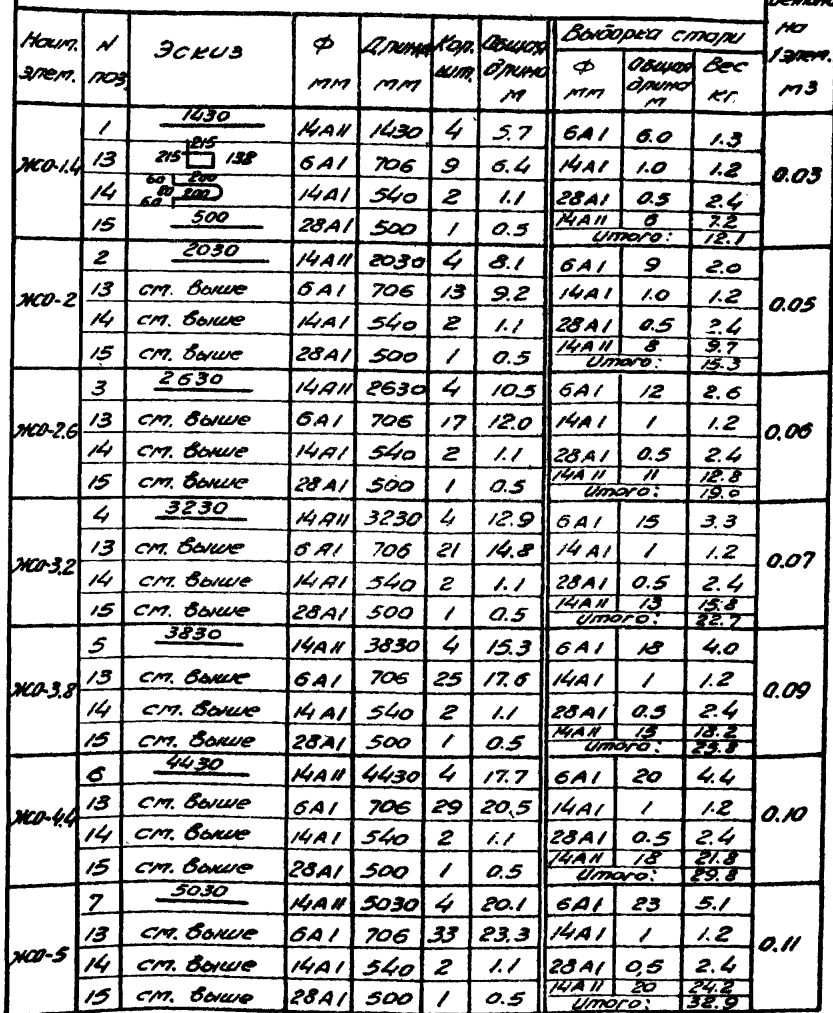 бетона
на
1 элем.
м3
Наим. элем. N поз. Эскиз Ф мм Длина мм Кол. шт. Общая длина м Выборка стали Ф мм Общая длина м Вес кг.
ЖО-1.4 1 1430 14AII 1430 4 5.7 6AI 6.0 1.3 0.03
13 215 215 138 6AI 706 9 6.4 14AI 1.0 1.2
14 60 200 80 200 60 14AI 540 2 1.1 28AI 0.5 2.4
15 500 28AI 500 1 0.5 14AII 6 7.2
Итого: 12.1
ЖО-2 2 2030 14AII 2030 4 8.1 6AI 9 2.0 0.05
13 см. выше 6AI 706 13 9.2 14AI 1.0 1.2
14 см. выше 14AI 540 2 1.1 28AI 0.5 2.4
15 см. выше 28AI 500 1 0.5 14AII 8 9.7
Итого: 15.3
ЖО-2.6 3 2630 14AII 2630 4 10.5 6AI 12 2.6 0.06
13 см. выше 6AI 706 17 12.0 14AI 1 1.2
14 см. выше 14AI 540 2 1.1 28AI 0.5 2.4
15 см. выше 28AI 500 1 0.5 14AII 11 12.8
Итого: 19.0
ЖО-3.2 4 3230 14AII 3230 4 12.9 6AI 15 3.3 0.07
13 см. выше 6AI 706 21 14.8 14AI 1 1.2
14 см. выше 14AI 540 2 1.1 28AI 0.5 2.4
15 см. выше 28AI 500 1 0.5 14AII 13 15.8
Итого: 22.7
ЖО-3.8 5 3830 14AII 3830 4 15.3 6AI 18 4.0 0.09
13 см. выше 6AI 706 25 17.6 14AI 1 1.2
14 см. выше 14AI 540 2 1.1 28AI 0.5 2.4
15 см. выше 28AI 500 1 0.5 14AII 15 18.2
Итого: 25.8
ЖО-4.4 6 4430 14AII 4430 4 17.7 6AI 20 4.4 0.10
13 см. выше 6AI 706 29 20.5 14AI 1 1.2
14 см. выше 14AI 540 2 1.1 28AI 0.5 2.4
15 см. выше 28AI 500 1 0.5 14AII 18 21.8
Итого: 29.8
ЖО-5 7 5030 14AII 5030 4 20.1 6AI 23 5.1 0.11
13 см. выше 6AI 706 33 23.3 14AI 1 1.2
14 см. выше 14AI 540 2 1.1 28AI 0,5 2.4
15 см. выше 28AI 500 1 0.5 14AII 20 24.2
Итого: 32.9